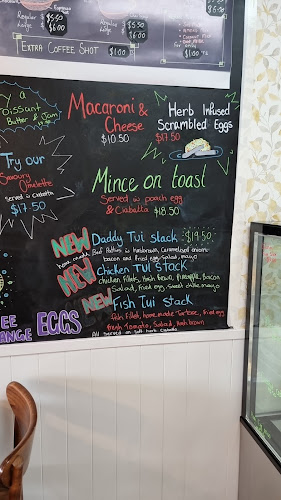 Regular $5.50
Large $6.00
Regular $5.50
Large $6.00
EXTRA COFFEE SHOT $1.00
y a
roissant
Butter & Jam
Macaroni &
Cheese
$10.50
Herb Infused
Scrambled Eggs
$17.50
Try our
Savoury
Omulette
served w ciabatta
$17.50
Mince on toast
Served w poach egg
& Ciabatta $18.50
NEW Daddy Tui stack $19.50
home made Beef Patties w hashbrown, Caramelised onion
bacon and fried egg, salad, mayo
NEW Chicken TUI STACK
chicken fillets, Hash brown, Pineapple, Bacon
Salad, Fried egg, Sweet chilli mayo
NEW Fish Tui stack
Fish fillet, home made Tartare, fried egg
fresh Tomato, Salad, Hash brown
EE
ANGE EGGS
All Served on